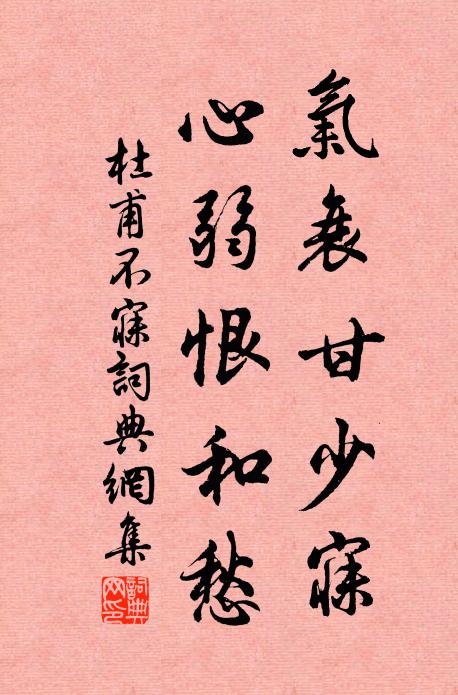 氣衰甘少寐
心弱恨和愁
杜甫不寐詞典網集
詞典網印